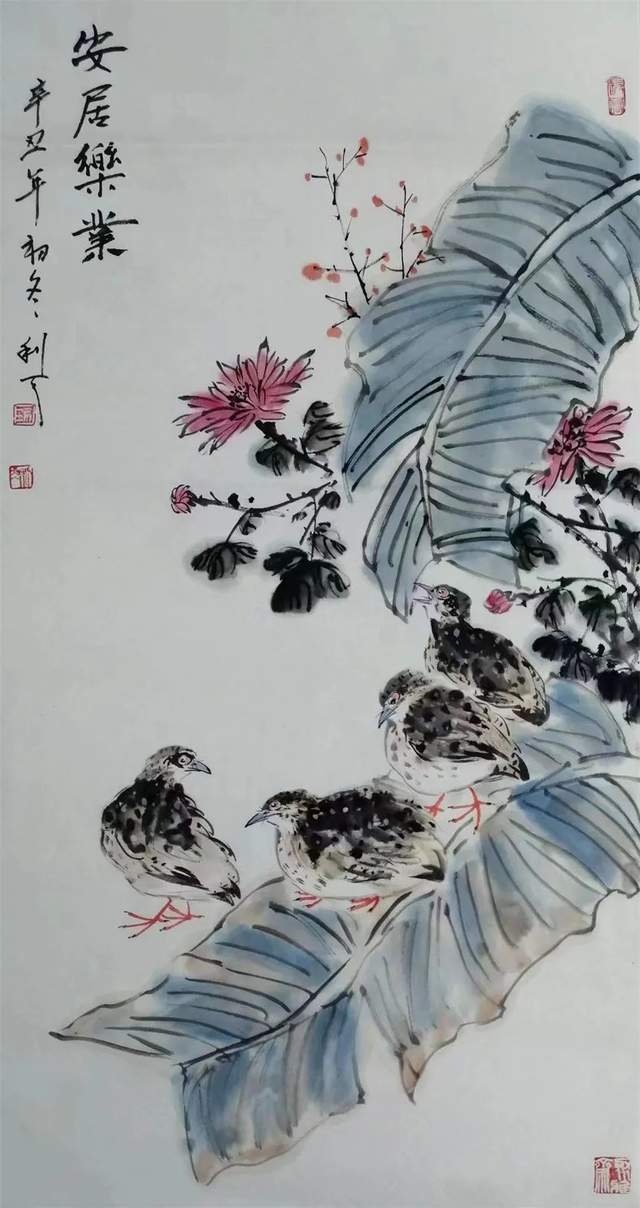 安居樂業
辛丑年初冬、利亨